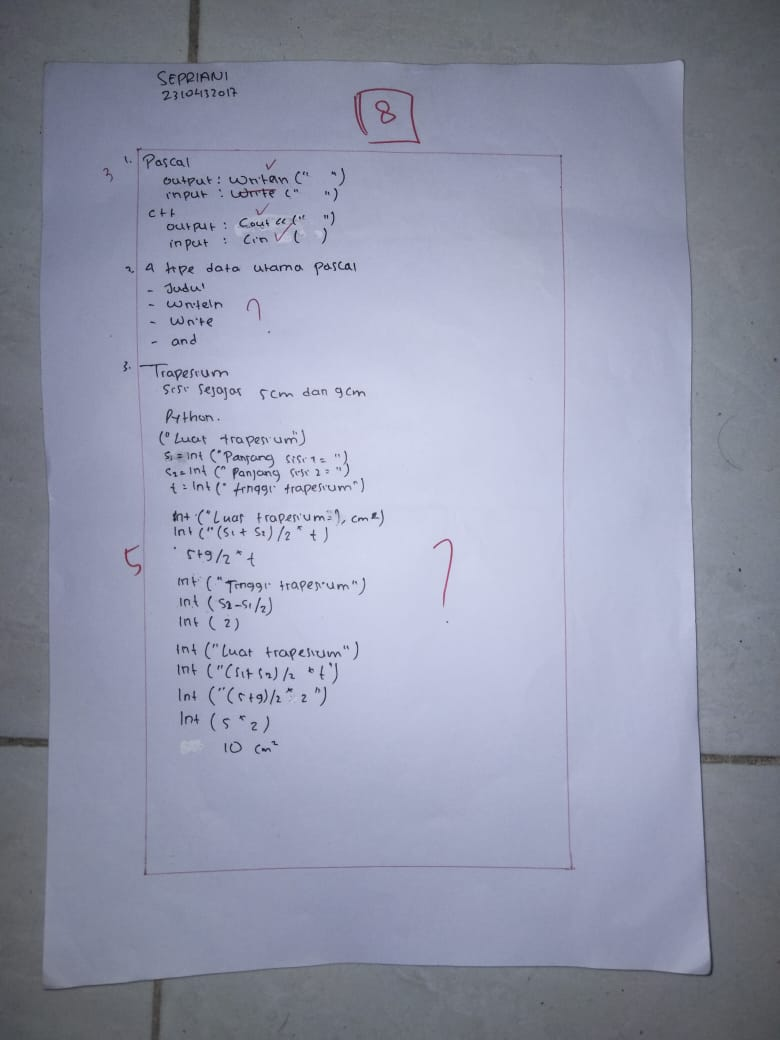 SEPRIANI
2310432017
8
3
1. Pascal
output : Writeln (" ")
input : Write (" ")
C++
output : Cout << (" ")
input : Cin ( )
2. 4 tipe data utama pascal
- Judul
- Writeln
- Write
- and
?
3. Trapesium
Sisi Sejajar 5cm dan 9cm
Python.
("Luas trapesium")
S1 = int ("Panjang sisi 1 = ")
S2 = Int (" Panjang sisi 2 = ")
t = Int (" tinggi trapesium")
Int ("Luas trapesium = ), cm2)
Int ("(S1 + S2) /2 * t )
5+9/2 * t
5
?
Int ("Tinggi trapesium")
Int (S2-S1/2)
Int ( 2)
Int ("Luas trapesium")
Int ("(S1+S2)/2 * t")
Int ("(5+9)/2 * 2 ")
Int (5 * 2)
10 cm²